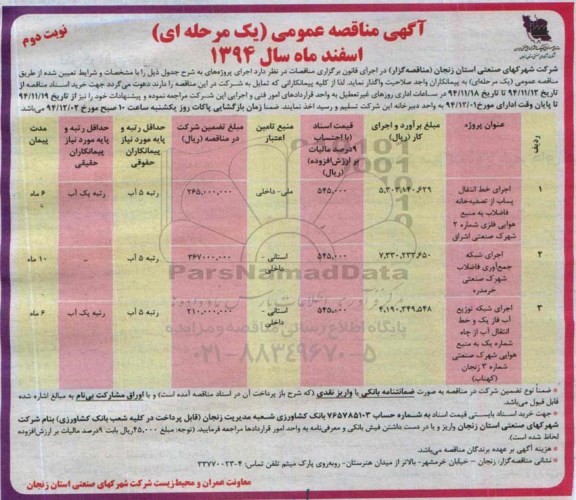 آگهی مناقصه عمومی (یک مرحله ای)
نوبت دوم
اسفند ماه سال ۱۳۹۴
شرکت شهرکهای صنعتی استان زنجان (مناقصه‌گزار) در اجرای قانون برگزاری مناقصات در نظر دارد اجرای پروژه‌های به شرح جدول ذیل را با مشخصات و شرایط تعیین شده از طریق
مناقصه عمومی (یک مرحله‌ای) به پیمانکاران واجد صلاحیت واگذار نماید. لذا از کلیه پیمانکارانی که تمایل به شرکت در این مناقصه را دارند دعوت می‌گردد جهت خرید اسناد مناقصه از
تاریخ ۹۴/۱۱/۱۲ تا تاریخ ۹۴/۱۱/۱۸ در ساعات اداری روزهای غیرتعطیل به واحد قراردادهای امور فنی و اجرایی این شرکت مراجعه نموده و پیشنهادات خود را نیز از تاریخ ۹۴/۱۱/۱۹
تا پایان وقت اداری مورخ ۹۴/۱۲/۰۱ به واحد دبیرخانه این شرکت تسلیم و رسید اخذ نمایند. ضمنا زمان بازگشایی پاکات روز یکشنبه ساعت ۱۰ صبح مورخ ۹۴/۱۲/۰۲ می‌باشد.
ردیف
عنوان پروژه
مبلغ برآورد و اجرای کار (ریال)
قیمت اسناد (با احتساب ۹درصد مالیات بر ارزش‌افزوده) (ریال)
منبع تامین اعتبار
مبلغ تضمین شرکت در مناقصه (ریال)
حداقل رتبه و پایه مورد نیاز پیمانکاران حقوقی
حداقل رتبه و پایه مورد نیاز پیمانکاران حقیقی
مدت پیمان
۱
اجرای خط انتقال پساب از تصفیه‌خانه فاضلاب به منبع هوایی فلزی شماره ۲ شهرک صنعتی اشراق
۵,۳۰۳,۱۴۰,۶۲۹
۵۴۵,۰۰۰
ملی- داخلی
۲۶۵,۰۰۰,۰۰۰
رتبه ۵ آب
رتبه یک آب
۶ ماه
۲
اجرای شبکه جمع‌آوری فاضلاب شهرک صنعتی خرمدره
۷,۳۳۰,۲۳۲,۶۵۰
۵۴۵,۰۰۰
استانی - داخلی
۳۶۷۰۰۰,۰۰۰
رتبه ۵ آب
-
۱۰ ماه
۳
اجرای شبکه توزیع آب فاز یک و خط انتقال آب از چاه شماره یک به منبع هوایی شهرک صنعتی شماره ۳ زنجان (کهناب)
۴,۱۹۰,۳۴۹,۵۴۸
۵۴۵,۰۰۰
استانی - داخلی
۲۱۰,۰۰۰,۰۰۰
رتبه ۵ آب
رتبه یک آب
۶ ماه
ParsNamadData
پایگاه اطلاع رسانی مناقصه و مزایده
۰۲۱-۸۸۳۴۹۶۷۰-۵
● ضمناً نوع تضمین شرکت در مناقصه به صورت ضمانتنامه بانکی یا واریز نقدی (که شرح باز پرداخت آن در اسناد مناقصه آمده است) و یا اوراق مشارکت بی‌نام به مبالغ اشاره شده
قابل قبول می‌باشد.
- جهت خرید اسناد بایستی قیمت اسناد به شماره حساب ۷۶۵۷۸۵۱۰۳ بانک کشاورزی شعبه مدیریت زنجان (قابل پرداخت در کلیه شعب بانک کشاورزی) بنام شرکت
شهرکهای صنعتی استان زنجان واریز و با در دست داشتن فیش بانکی و معرفی‌نامه به واحد امور قراردادها مراجعه فرمایید. (توجه: مبلغ ۴۵,۰۰۰ریال بابت ۹درصد مالیات بر ارزش‌افزوده
لحاظ شده است).
● هزینه آگهی بر عهده برندگان مناقصه می‌باشد.
● نشانی مناقصه‌گزار: زنجان – خیابان خرمشهر- بالاتر از میدان هنرستان- روبه‌روی پارک میثم تلفن تماس: ۴-۳۳۷۷۰۰۲۳
معاونت عمران و محیط زیست شرکت شهرکهای صنعتی استان زنجان